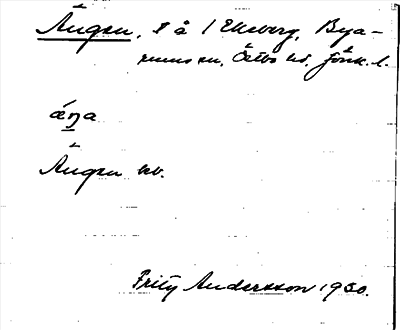 Ängen, l å 1 Ekeberg, Bya-
rums sn, Östbo hd. Jönk. l.
äŋa
Ängen hd.
Fritz Andersson 1930.